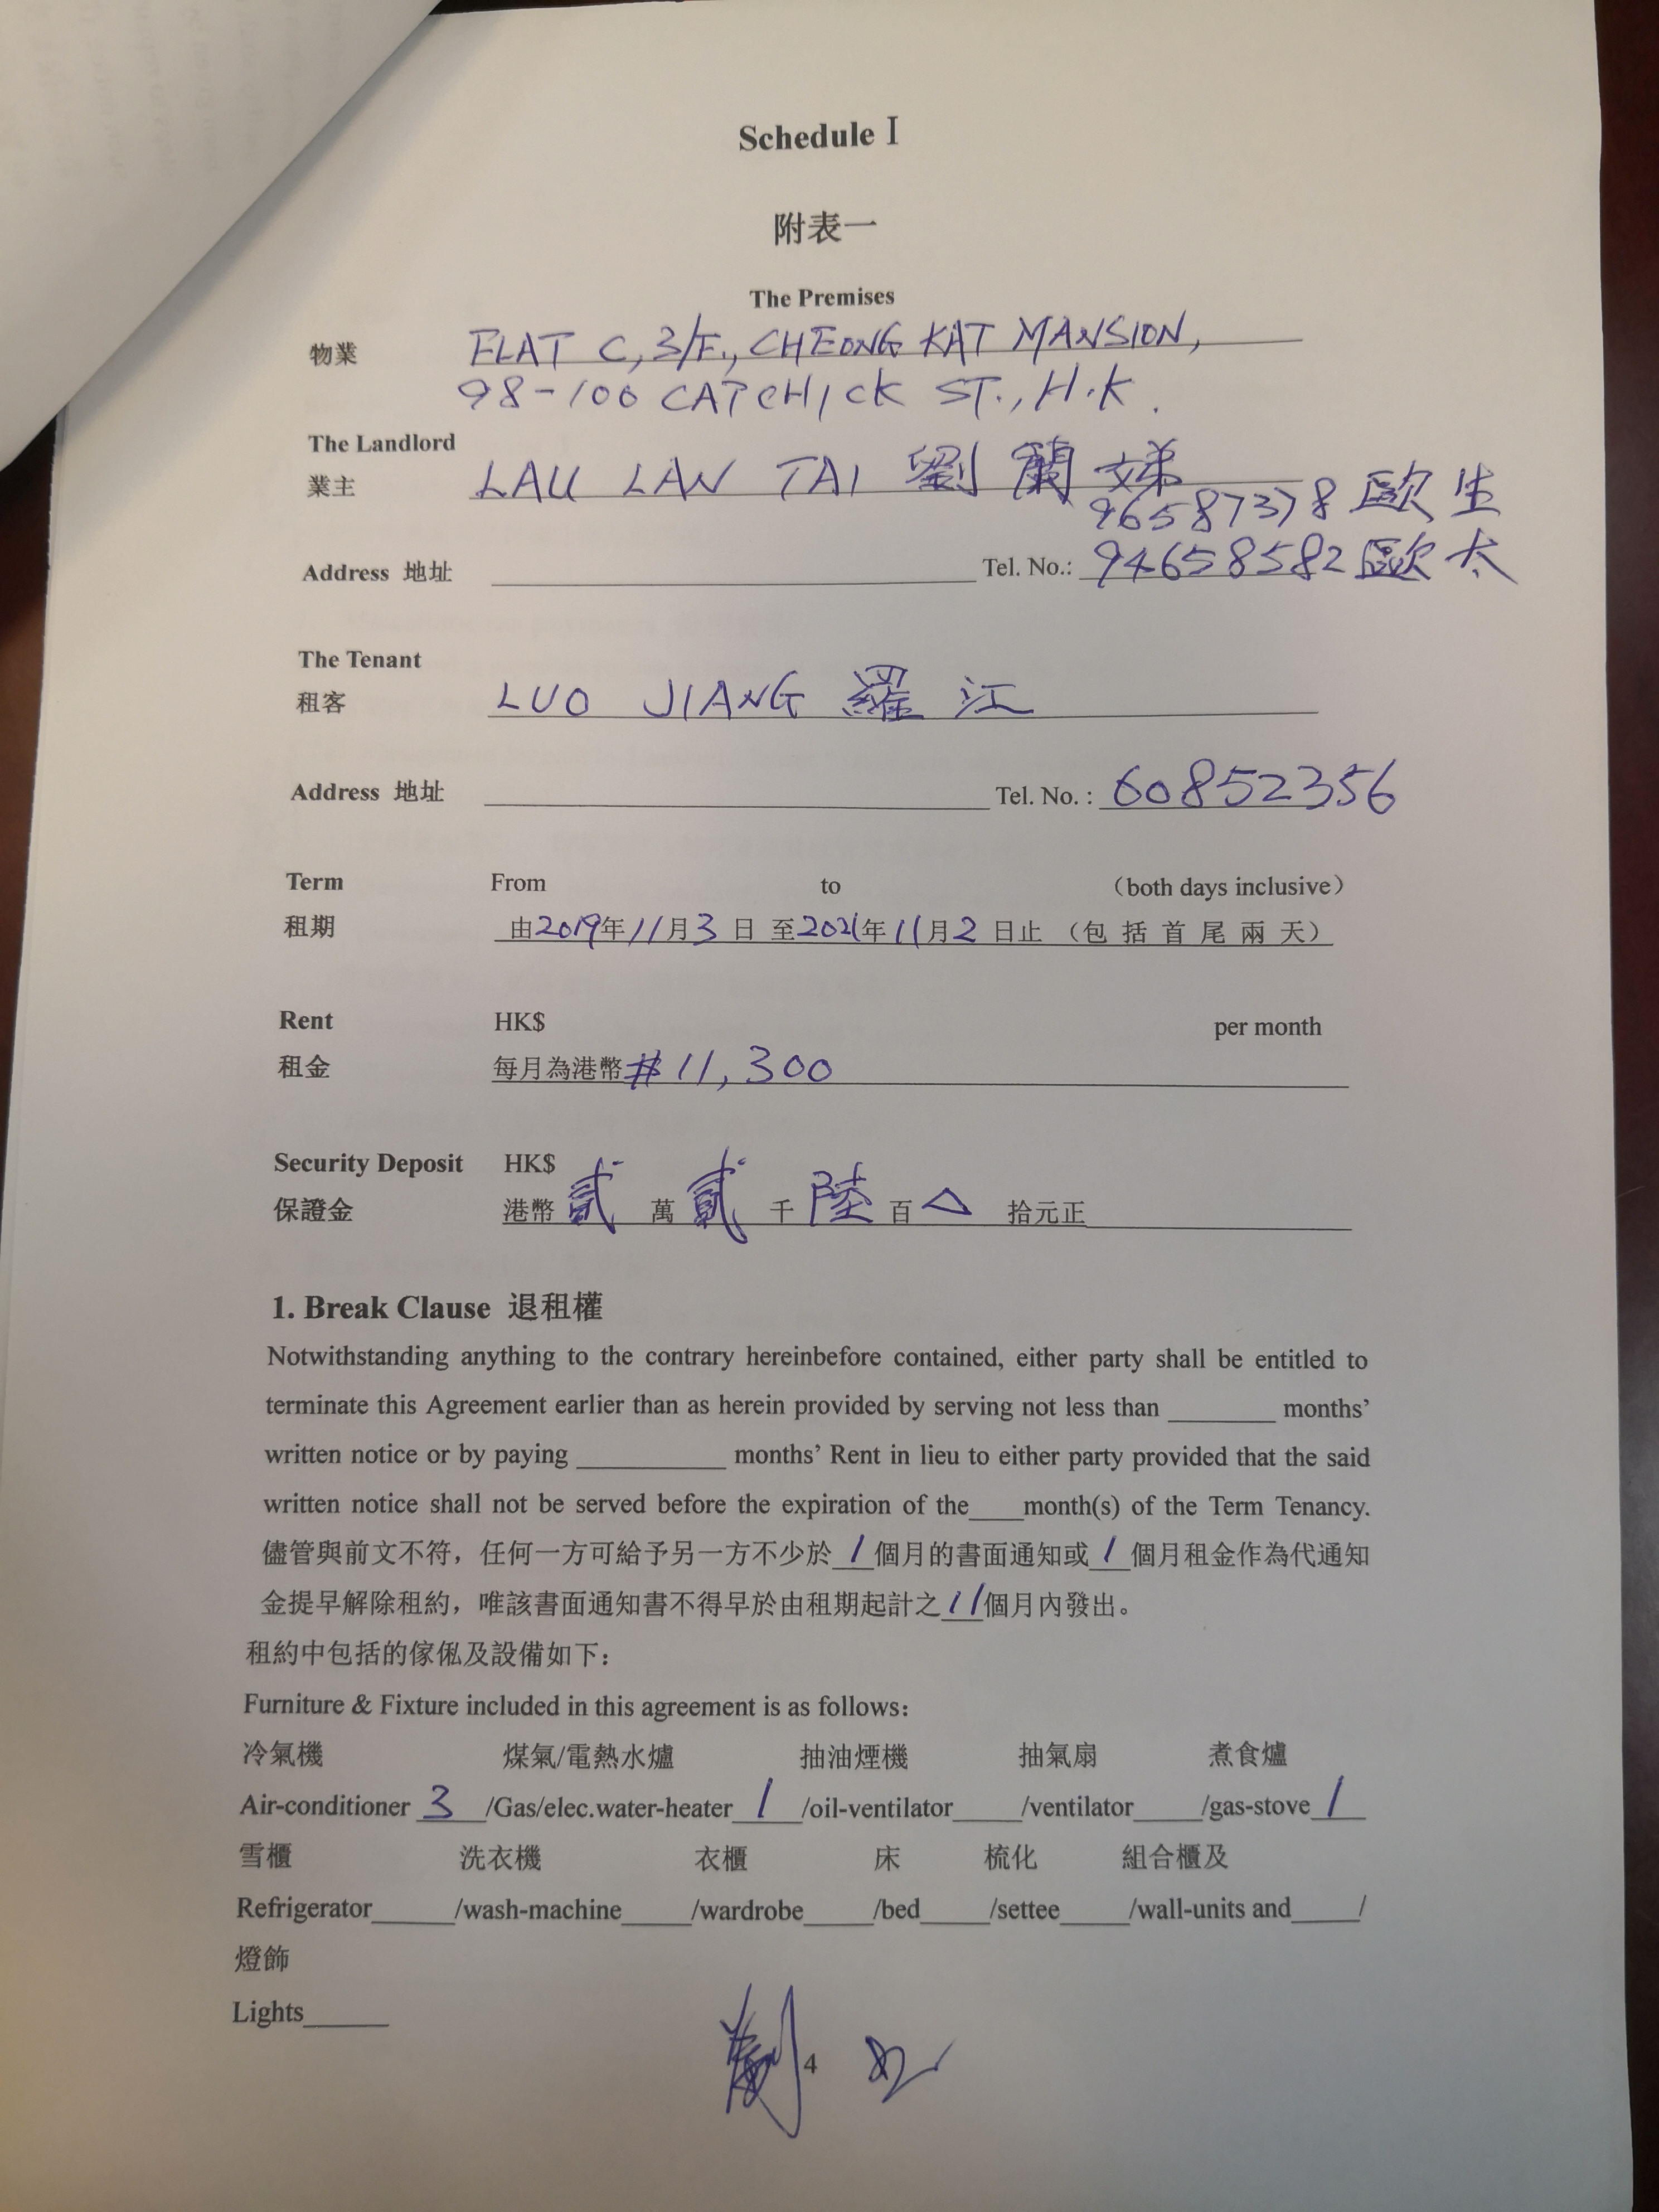 Schedule I
附表一
The Premises
物業 FLAT C, 3/F., CHEONG KAT MANSION,
98-100 CATCHICK ST., H.K.
The Landlord
業主 LAU LAN TAI 劉蘭娣
96587378 歐生
Address 地址 Tel. No.: 94658582 歐太
The Tenant
租客 LUO JIANG 羅江
Address 地址 Tel. No. : 60852356
Term From to (both days inclusive)
租期 由2019年11月3日 至2021年11月2日止 (包括首尾兩天)
Rent HK$ per month
租金 每月為港幣$11,300
Security Deposit HK$
保證金 港幣 貳 萬 貳 千 陸 百 △ 拾元正
1. Break Clause 退租權
Notwithstanding anything to the contrary hereinbefore contained, either party shall be entitled to
terminate this Agreement earlier than as herein provided by serving not less than ________ months’
written notice or by paying ___________ months’ Rent in lieu to either party provided that the said
written notice shall not be served before the expiration of the____month(s) of the Term Tenancy.
儘管與前文不符，任何一方可給予另一方不少於 1 個月的書面通知或 1 個月租金作為代通知
金提早解除租約，唯該書面通知書不得早於由租期起計之 11 個月內發出。
租約中包括的傢俬及設備如下：
Furniture & Fixture included in this agreement is as follows:
冷氣機 煤氣/電熱水爐 抽油煙機 抽氣扇 煮食爐
Air-conditioner 3 /Gas/elec.water-heater 1 /oil-ventilator_____/ventilator_____/gas-stove 1
雪櫃 洗衣機 衣櫃 床 梳化 組合櫃及
Refrigerator______/wash-machine_____/wardrobe_____/bed_____/settee_____/wall-units and_____/
燈飾
Lights______
4